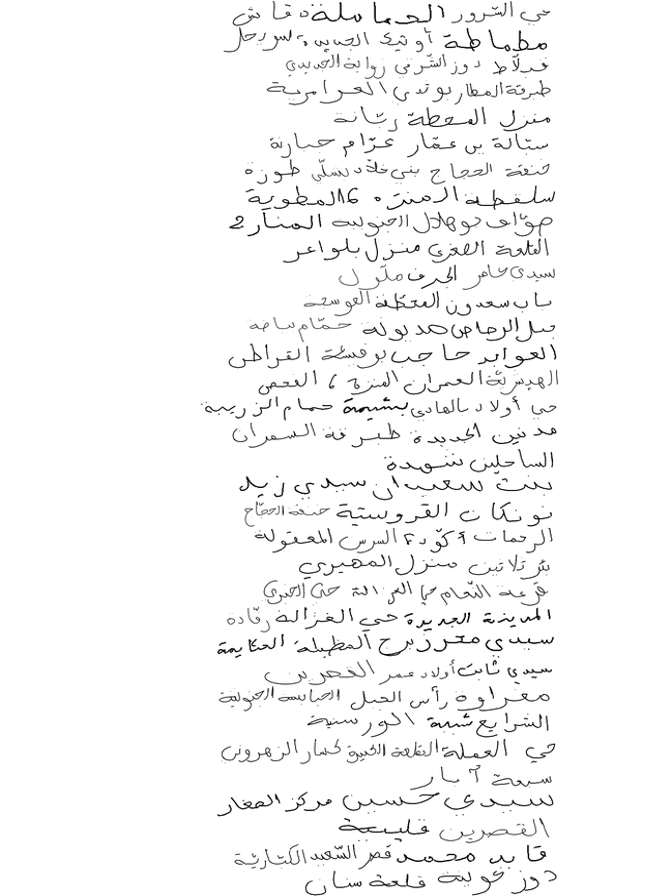 حي السرور الحماملة دقاش
مطماطة أوتيك الجديدة بسوريحل
قبلاط دوز الشرقي زواية الجديدي
طبرقة المطار بوندي العرامرية
منزل المحطة رتانة
ستالة بن عمّار عزّام حبارنة
خنقة الحجاج بني خلاد تسلّى طوزة
سلقطة المنزه 16 المطوية
صوّاف بوهلال الجنوبية المنار 2
القلعة الصغرى منزل بلواعر
سيدي عامر الجرف ملّول
باب سعدون المحطة الموسعة
جبل الرصاص هديولة حمّام بياضة
العوابد حاجب بوفيشة القراطن
الهيشرية العمران المنزه 6 الفحص
حي أولاد بالهادي بشيمة حمام الزريبة
مدنين الجديدة طبرقة السمران
الساحلين شهدة
بنت سعيدان سيدي زيد
نونكات القروستية خنقة الحجّاج
الرحمات أكّودة السرس المعقولة
بئر ثلاثين منزل المهيري
قرعة النّعام حي الغزالة حي الخيري
المدينة الجديدة حي الغزالة رقّادة
سيدي محرز برج المظيلة الحكايمة
سيدي ثابت أولاد عمر القصرين
مغراوة رأس الجبل العبابسة الجنوبية
الشرايع شيبة الورسنية
حي العملة القلعة الكبيرة كسار الزهروني
سبعة آبار
سيدي حسين مركز الصغار
القصرين قليبية
قايد محمد قصر السّعيد الكثارية
دوز حولية قلعة سنان